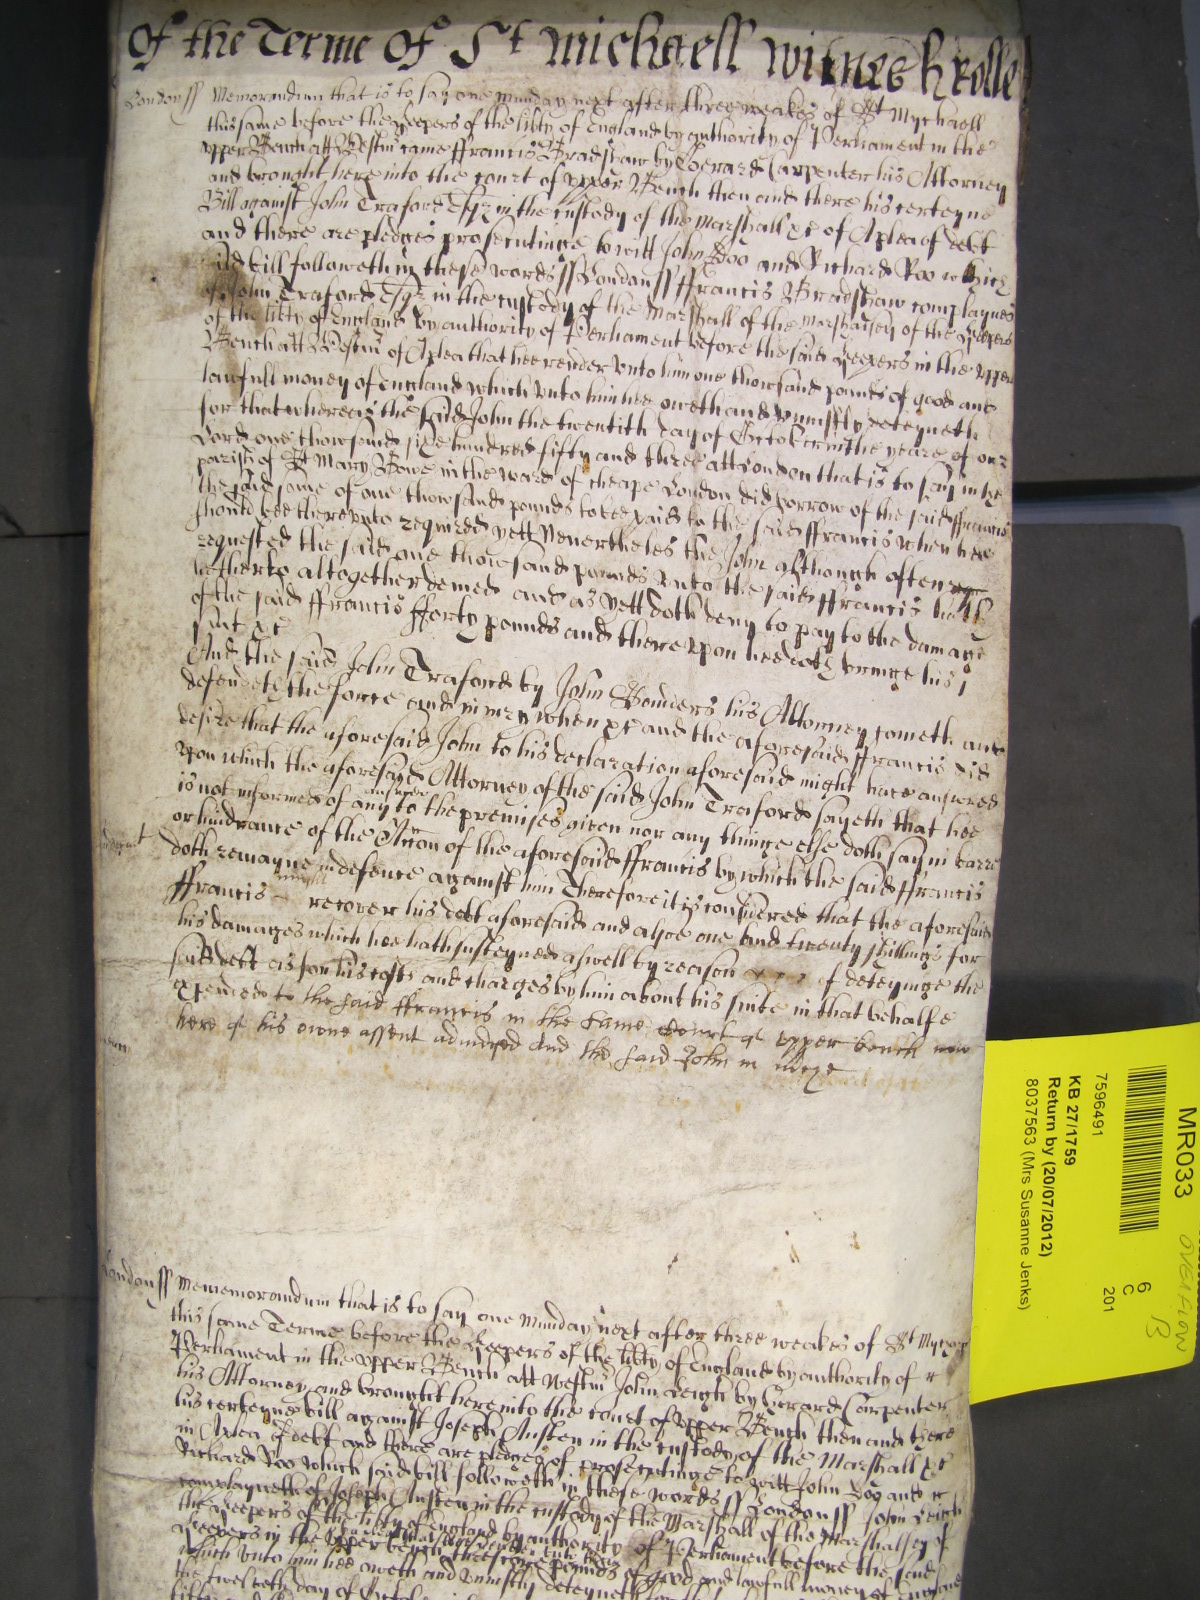 Of the Terme Of St Michaell Witnes H Rolle
London ss Memorandum that is to say one Munday next after three weakes of St Mychaell
this same before the Keepers of the libty of England by authority of Perliament in the
upper Bench att Westmr came ffrancis Bradshaw by Gerard Carpenter his Attorney
and brought here into the court of upper Bench then and there his certeyne
Bill against John Traford Esqr in the custody of the Marshall xc of A plea of debt
and there are pledges prosecutinge to witt John Doo and Richard Roo which
said bill followeth in these words ss London ss ffrancis Bradshaw complaynes
of John Traford Esqr in the custody of the Marshall of the Marshalsey of the Keepers
of the libty of England by authority of Perliament before the said Keepers in the upper
Bench att Westmr of A plea that hee render unto him one thowsand pounds of good and
lawfull money of England which unto him hee oweth and uniustly deteyneth
for that whereas the said John the twentith day of October in the yeare of our
Lord one thowsand six hundred fifty and three att London that is to say in the
parish of St Mary Bowe in the ward of Cheape London did borrow of the said ffrancis
the said some of one thowsand pounds to bee paid to the said ffrancis when hee
should bee thereunto required yett Nevertheles the John although often
requested the said one thowsand pounds unto the said ffrancis hath
hitherto altogether denied and as yett doth deny to pay to the damage
of the said ffrancis fforty pounds and there upon hee doth bringe his
sut xc
And the said John Traford by John Saunders his Attorney cometh and
defendeth the force and iniury when xc and the aforesaid ffrancis did
desire that the aforesaid John to his declaration aforesaid might have answered
upon which the aforesaid Attorney of the said John Traford sayeth that hee
is not informed of any answere to the premises given nor any thinge else doth say in barre
or hindrance of the Accon of the aforesaid ffrancis by which the said ffrancis
doth remayne in defence against him Therefore it is considered that the aforesaid
ffrancis might recover his debt aforesaid and alsoe one and twenty shillings for
his damages which hee hath susteyned aswell by reason of deteyninge the
said debt as for his costs and charges by him about his suite in that behalfe
expended to the said ffrancis in the same Court of upper bench now
here of his owne assent adiudged And the said John in mercy
London ss Mememorandum that is to say one Munday next after three weakes of St
this same Terme before the Keepers of the libty of England by authority of
Perliament in the upper Bench att Westmr John Leigh by Gerard Carpenter
his Attorney and brought here into the court of upper Bench then and there
his certeyne bill against Joseph Austen in the custody of the Marshall xc
in A plea of debt and there are pledges of prosecutinge to witt John Doo and
Richard Roo which said bill followeth in these words ss London ss John Leigh
complayneth of Joseph Austen in the custody of the Marshall of the Marshalsey of
the Keepers of the libty of England by authority of Perliament before the said
Keepers in the upper bench threescore pounds of good and lawfull money of England
which unto him hee oweth and uniustly deteyneth
the twelveth day of October
MR033
OVERFLOW
B
6
C
201
7596491
KB 27/1759
Return by (20/07/2012)
8037563 (Mrs Susanne Jenks)